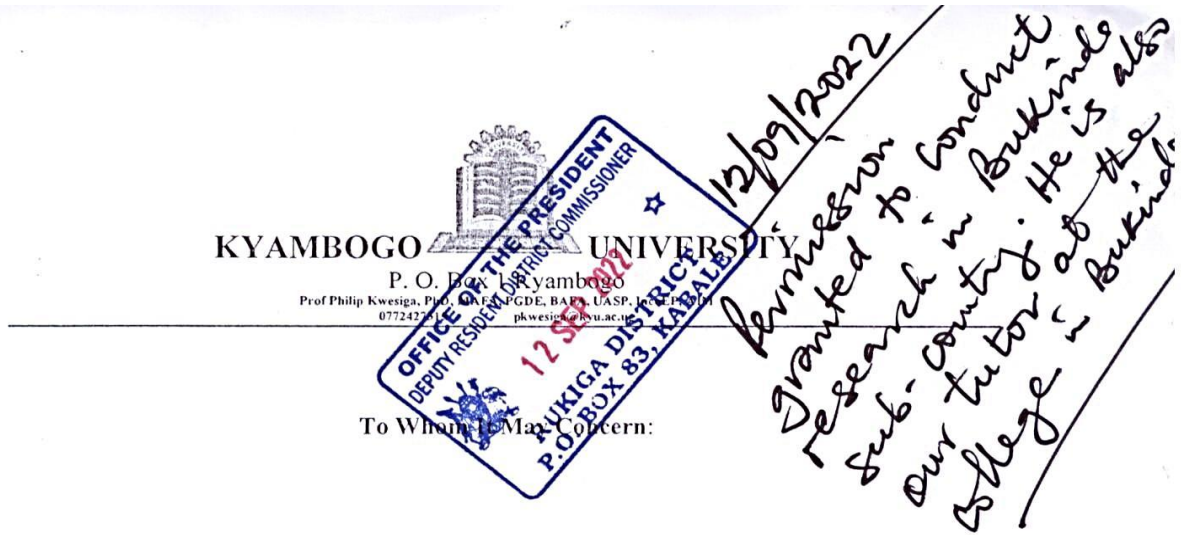 KYAMBOGO UNIVERSITY
P. O. Box 1 Kyambogo
Prof Philip Kwesiga, PhD, PGDE, UASP,
pkwesiga@kyu.ac.ug
To Whom It May Concern:
OFFICE OF THE PRESIDENT
DEPUTY RESIDENT DISTRICT COMMISSIONER
12 SEP 2022
RUKIGA DISTRICT
P.O. BOX 83, KABALE
12/09/2022
Permission
granted to conduct
research in Bukinda
sub-county. He is also
our tutor at the
college in Bukinda